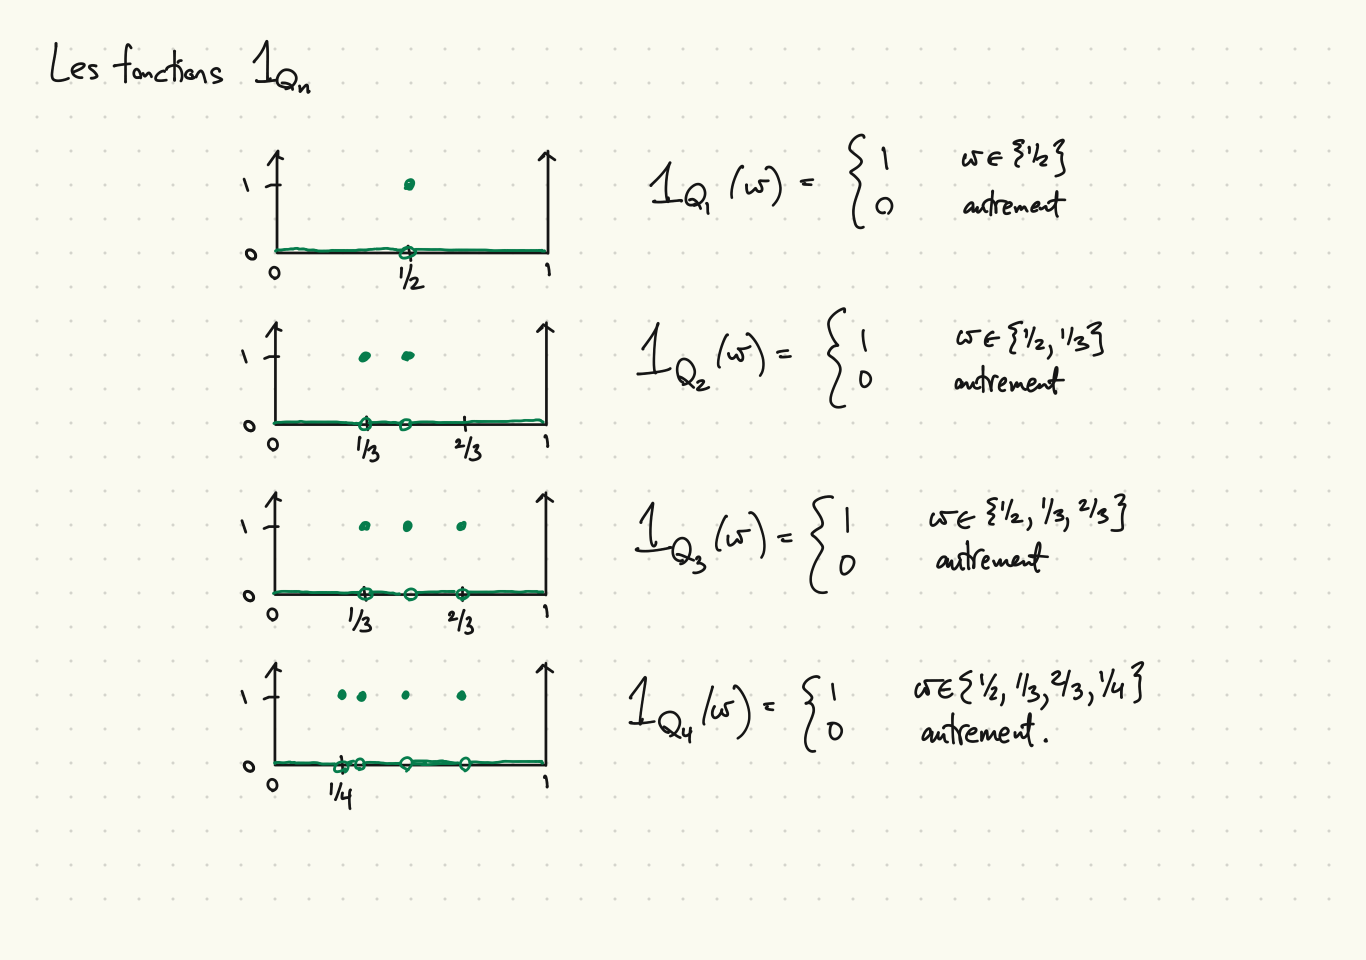 Les fonctions 1_{Q_n}
1
0
0 1/2 1
1_{Q_1}(ω) = { 1 ω ∈ {1/2}
0 autrement
1
0
0 1/3 2/3 1
1_{Q_2}(ω) = { 1 ω ∈ {1/2, 1/3}
0 autrement
1
0
0 1/3 2/3 1
1_{Q_3}(ω) = { 1 ω ∈ {1/2, 1/3, 2/3}
0 autrement
1
0
0 1/4 1
1_{Q_4}(ω) = { 1 ω ∈ {1/2, 1/3, 2/3, 1/4}
0 autrement.